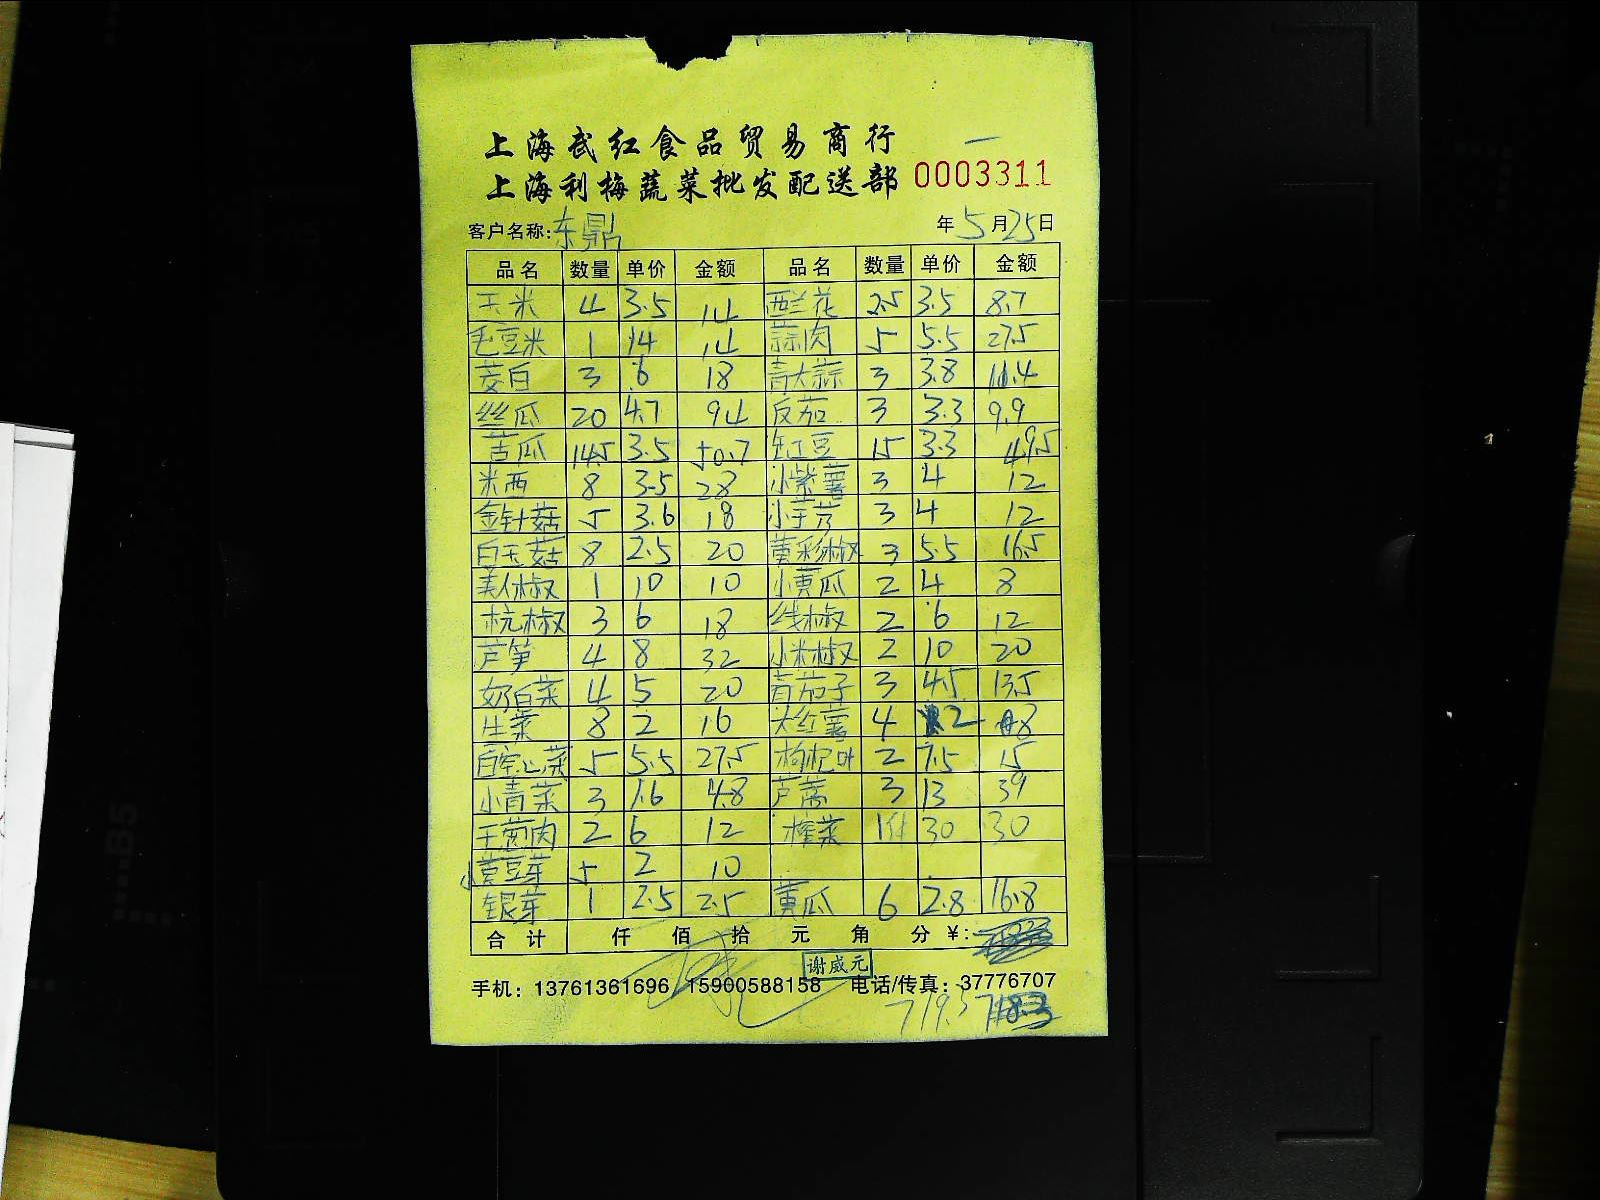 上海武红食品贸易商行
上海利梅蔬菜批发配送部 0003311
客户名称:东鼎 年5月25日
品名 数量 单价 金额 品名 数量 单价 金额
玉米 4 3.5 14 西兰花 2.5 3.5 8.7
毛豆米 1 14 14 蒜肉 5 5.5 27.5
茭白 3 6 18 青大蒜 3 3.8 11.4
丝瓜 20 4.7 94 反茄 3 3.3 9.9
苦瓜 14.5 3.5 50.7 豇豆 15 3.3 49.5
米西 8 3.5 28 小紫薯 3 4 12
金针菇 5 3.6 18 小芋艿 3 4 12
白玉菇 8 2.5 20 黄彩椒 3 5.5 16.5
美人椒 1 10 10 小黄瓜 2 4 8
杭椒 3 6 18 线椒 2 6 12
芦笋 4 8 32 小米椒 2 10 20
奶白菜 4 5 20 青茄子 3 4.5 13.5
生菜 8 2 16 大红薯 4 2 8
白空心菜 5 5.5 27.5 枸杞叶 2 7.5 15
小青菜 3 1.6 4.8 芦蒿 3 13 39
干葱肉 2 6 12 榨菜 1件 30 30
小黄豆芽 5 2 10
银芽 1 2.5 2.5 黄瓜 6 2.8 16.8
合计 仟 佰 拾 元 角 分 ¥:
谢威元
手机：13761361696 15900588158 电话/传真：37776707
719.3 718.3